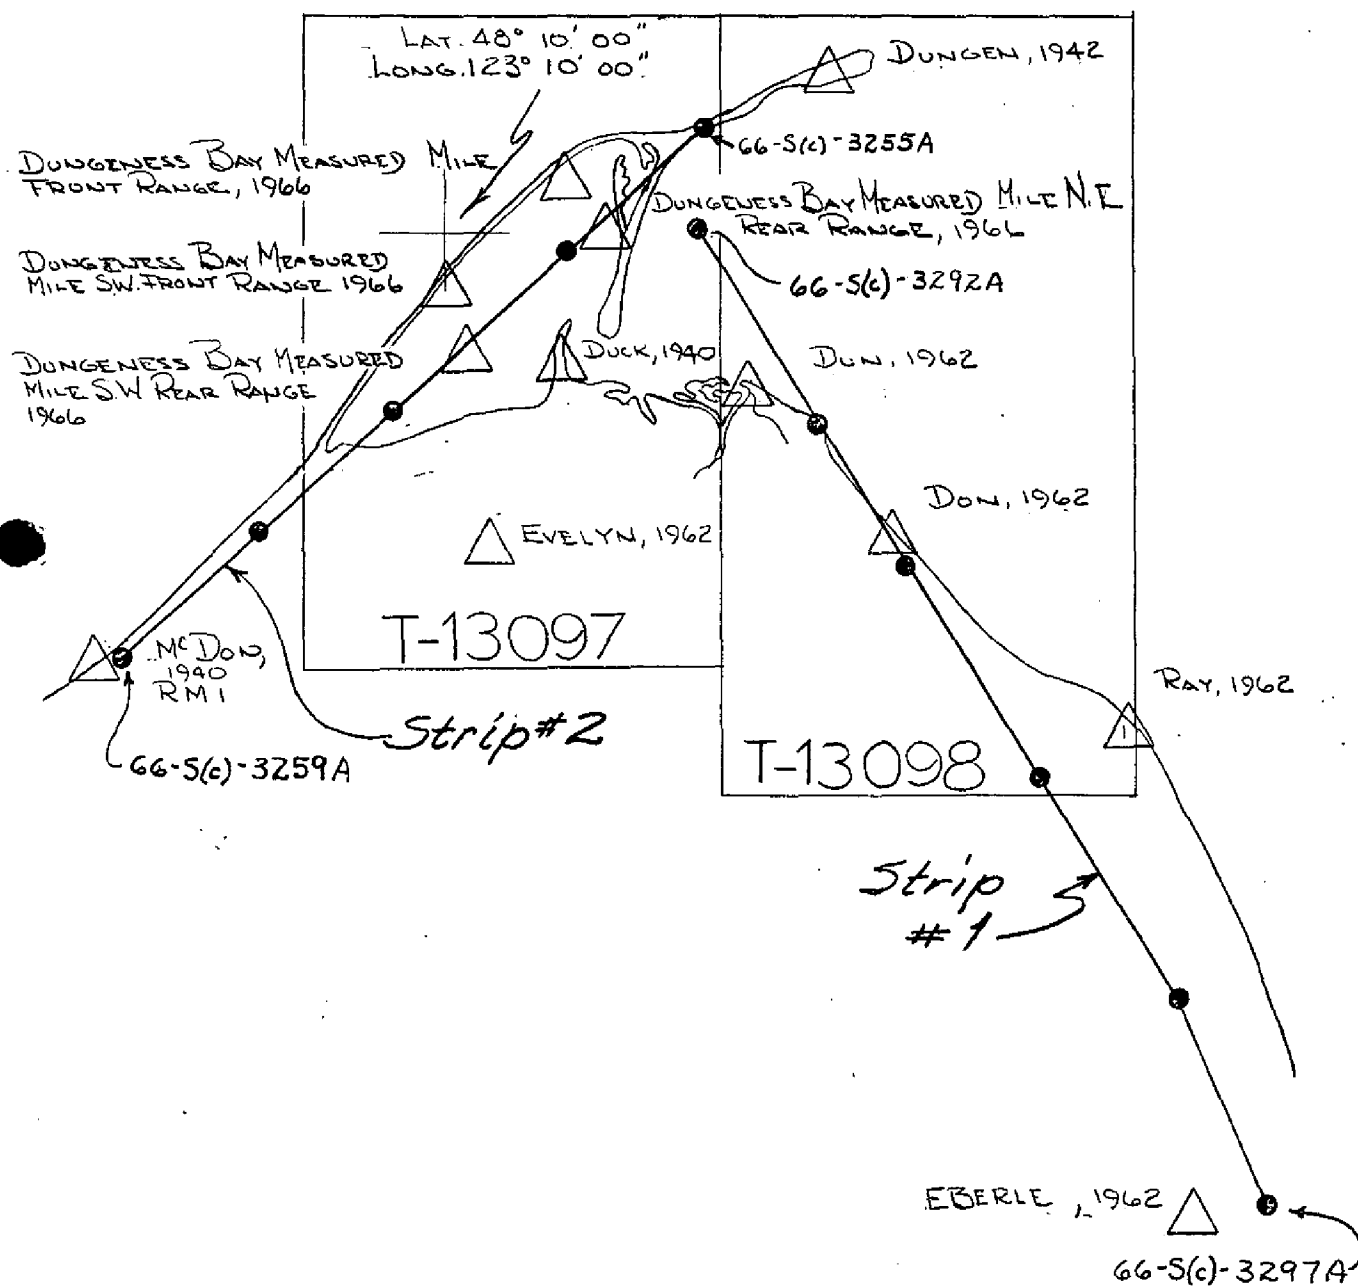 LAT. 48° 10' 00"
LONG. 123° 10' 00"
DUNGEN, 1942
66-S(c)-3255A
DUNGENESS BAY MEASURED MILE
FRONT RANGE, 1966
DUNGENESS BAY MEASURED MILE N.E
REAR RANGE, 1966
66-S(c)-3292A
DUNGENESS BAY MEASURED
MILE S.W. FRONT RANGE 1966
DUNGENESS BAY MEASURED
MILE S.W REAR RANGE
1966
DUCK, 1940
DUN, 1962
DON, 1962
EVELYN, 1962
T-13097
McDON,
1940
RM 1
RAY, 1962
Strip #2
66-S(c)-3259A
T-13098
Strip
#1
EBERLE, 1962
66-S(c)-3297A